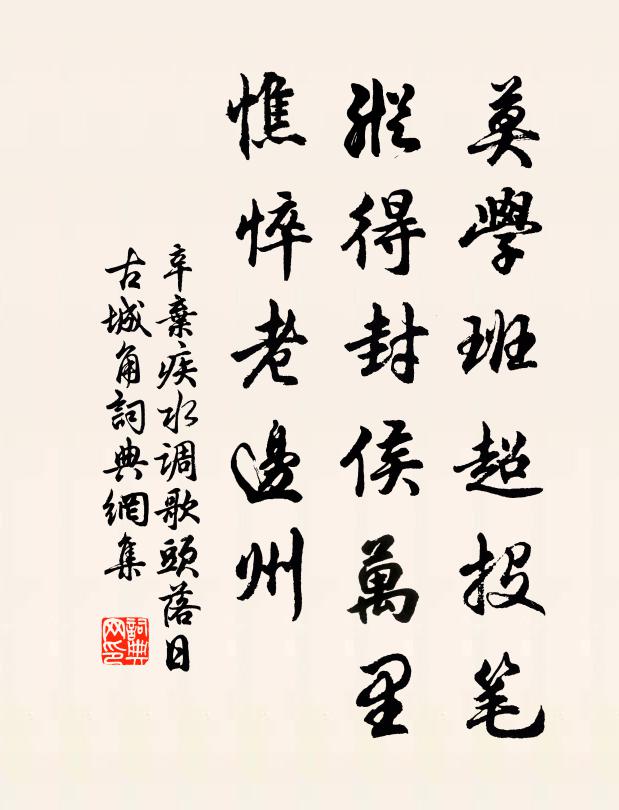 莫學班超投笔
縱得封侯萬里
憔悴老邊州
辛棄疾水调歌頭落日
古城角詞典網集
詞典网印